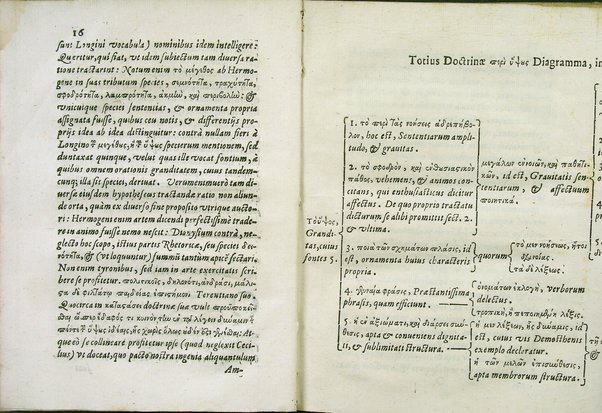 16
sunt Longini vocabula) nominibus idem intelligere:
Queritur, qui fiat, vt idem subiectum tam diversa ra-
tione tractarint: Notum enim τὸ μέγεθος ab Hermo-
gene in suas tributum species, σεμνότητα, τραχύτητα,
σφοδρότητα, λαμπρότητα, ἀκμὼ, καὶ περιβολὼ: &
vnicuique species sententias, & ornamenta propria
assignata fuisse, quibus ceu notis, & differentijs pro-
prijs idea ab idea distinguitur: contrà nullam fieri à
Longino τῦ μεγέθυς, ἢ τῦ ὕψυς specierum mentionem, sed
duntaxat quinque, velut quas ille vocat fontium, à
quibus omnem orationis granditatem, cuius tandem-
cunq; illa sit species, derivat. Verumenimvero tam di-
versæ eiusdem hypotheseως tractandæ ratio non aliun-
de orta, quàm ex diverso fine proposito vtrique aucto-
ri: Hermogeni enim artem dicendi perfectissimè trade-
re in animo fuisse nemo nescit: Dionysium contrà, ne-
glecto hoc scopo, ictius partis Rhetoricæ, seu species δει-
νότητα, & (vt loquuntur) summū tantùm apicē sectari.
Non enim tyronibus, sed iam in arte exercitatis scribe-
re se profitetur. πολιτικοῖς, δηλονότι, ἀνδράσι, μάλι-
σα δὲ φιλτάτῳ παιδείας ἐπισήμονι Terentiano suo.
Quocirca in κατασάσει doctrinæ suæ
ὑπὲρ τῦ ὕψυς ἰδέας, ἧς χωρὶς
que eò se collineare profitetur ipse (quod neglexit Ceci-
lius) vt doceat, quo pacto nostra ingenia aliquantulum
Am-
Totius Doctrinæ περὶ ὕψυς Diagramma, in
Τοῦ ὕψυς,
Grandi-
tas, cuius
fontes 5.
1. τὸ περὶ τὰς νοήσεις ἀδρεπήβο-
λον, hoc est, Sententiarum ampli-
tudo, & gravitas.
2. τὸ σφοδρὸν, καὶ ἐνθυσιαστικὸν
πάθος, vehemens, & animos con-
citans, qui enthusiasticus dicitur
affectus. De quo proprio tractatu
dicturum se alibi promittit sect. 2.
& vltima.
μεγάλων ἐννοιῶν, καὶ παθητι-
κῶν, id est, Gravitatis sen-
tentiarum, & affectuum
ποιητικά.
3. ποιὰ τῶν σχημάτων πλάσις, id
est, ornamenta huius characteris
propria.
quorum
τὰ μὲν νοήσεως, ἤτοι
διανοίας.
τὰ δὲ λέξεως.
4. γενναία φράσις, Præstantissima
phrasis, quam efficiunt.
ὀνομάτων ἐκλογὴ, verborum
delectus.
τροπικὴ, ἢ πεποιημένη λέξις.
5. ἡ ἐν ἀξιώματι, καὶ διάρσει σύνθε-
σις, apta & conveniens dignita-
ti, & sublimitati structura.
ἡ μὲν λέξεων, ἧς δύναμις, id
est, cuius vis Demosthenis
exemplo declaratur.
ἡ τῶν μελῶν ἐπισύνθεσις,
apta membrorum structura.